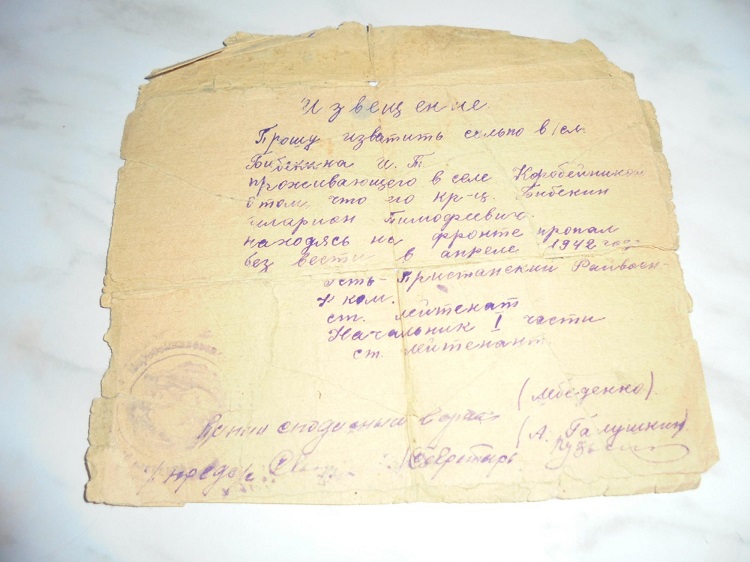 Извещение
Прошу изватить только в/сл.
Бибекина И. Т.
проживающего в селе Коробейником
о том, что его кр-ц. Бибекин
иларион Тимофеевич.
находясь на фронте пропал
без вести в апреле 1942 года
Усть-Пристанский Райвоен-
ком.
ст. лейтенат
Начальник I части
ст. лейтенант.
(Лебеденко).
(А. Галушкин).
Секретарь